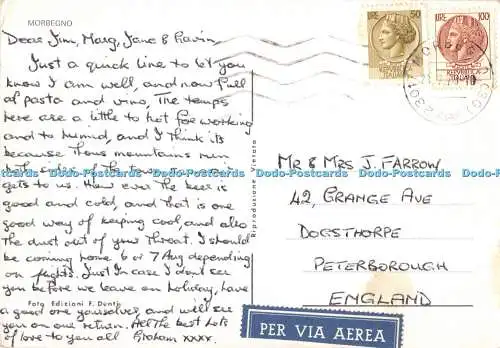 MORBEGNO
Dear Jim, Marg, Jane & Gavin,
Just a quick Line to Let you
know I am well, and now full
of pasta and vino, The temps
here are a little to hot for working
and to humid, and I think its
because thous mountains run
the sides of the town, so no
gets to us. How ever the beer is
good and cold, and that is one
good way of keeping cool, and also
the dust out of your throat. I should
be coming home 6 or 7 Aug depending
on flights. Just In case I dont see
you before we leave on holiday, have
a good one yourselves, and will see
you on our return. All the best Lots
of love to you all Graham xxxx.
Foto Edizioni F. Donti
Riproduzione vietata
LIRE 50
LIRE 100
REPVBBLICA ITALIANA
MR & MRS J. FARROW,
42, GRANGE AVE
DOGSTHORPE
PETERBOROUGH
ENGLAND
PER VIA AEREA
Dodo-Postcards Dodo-Postcards Dodo-Postcards Dodo-Postcards